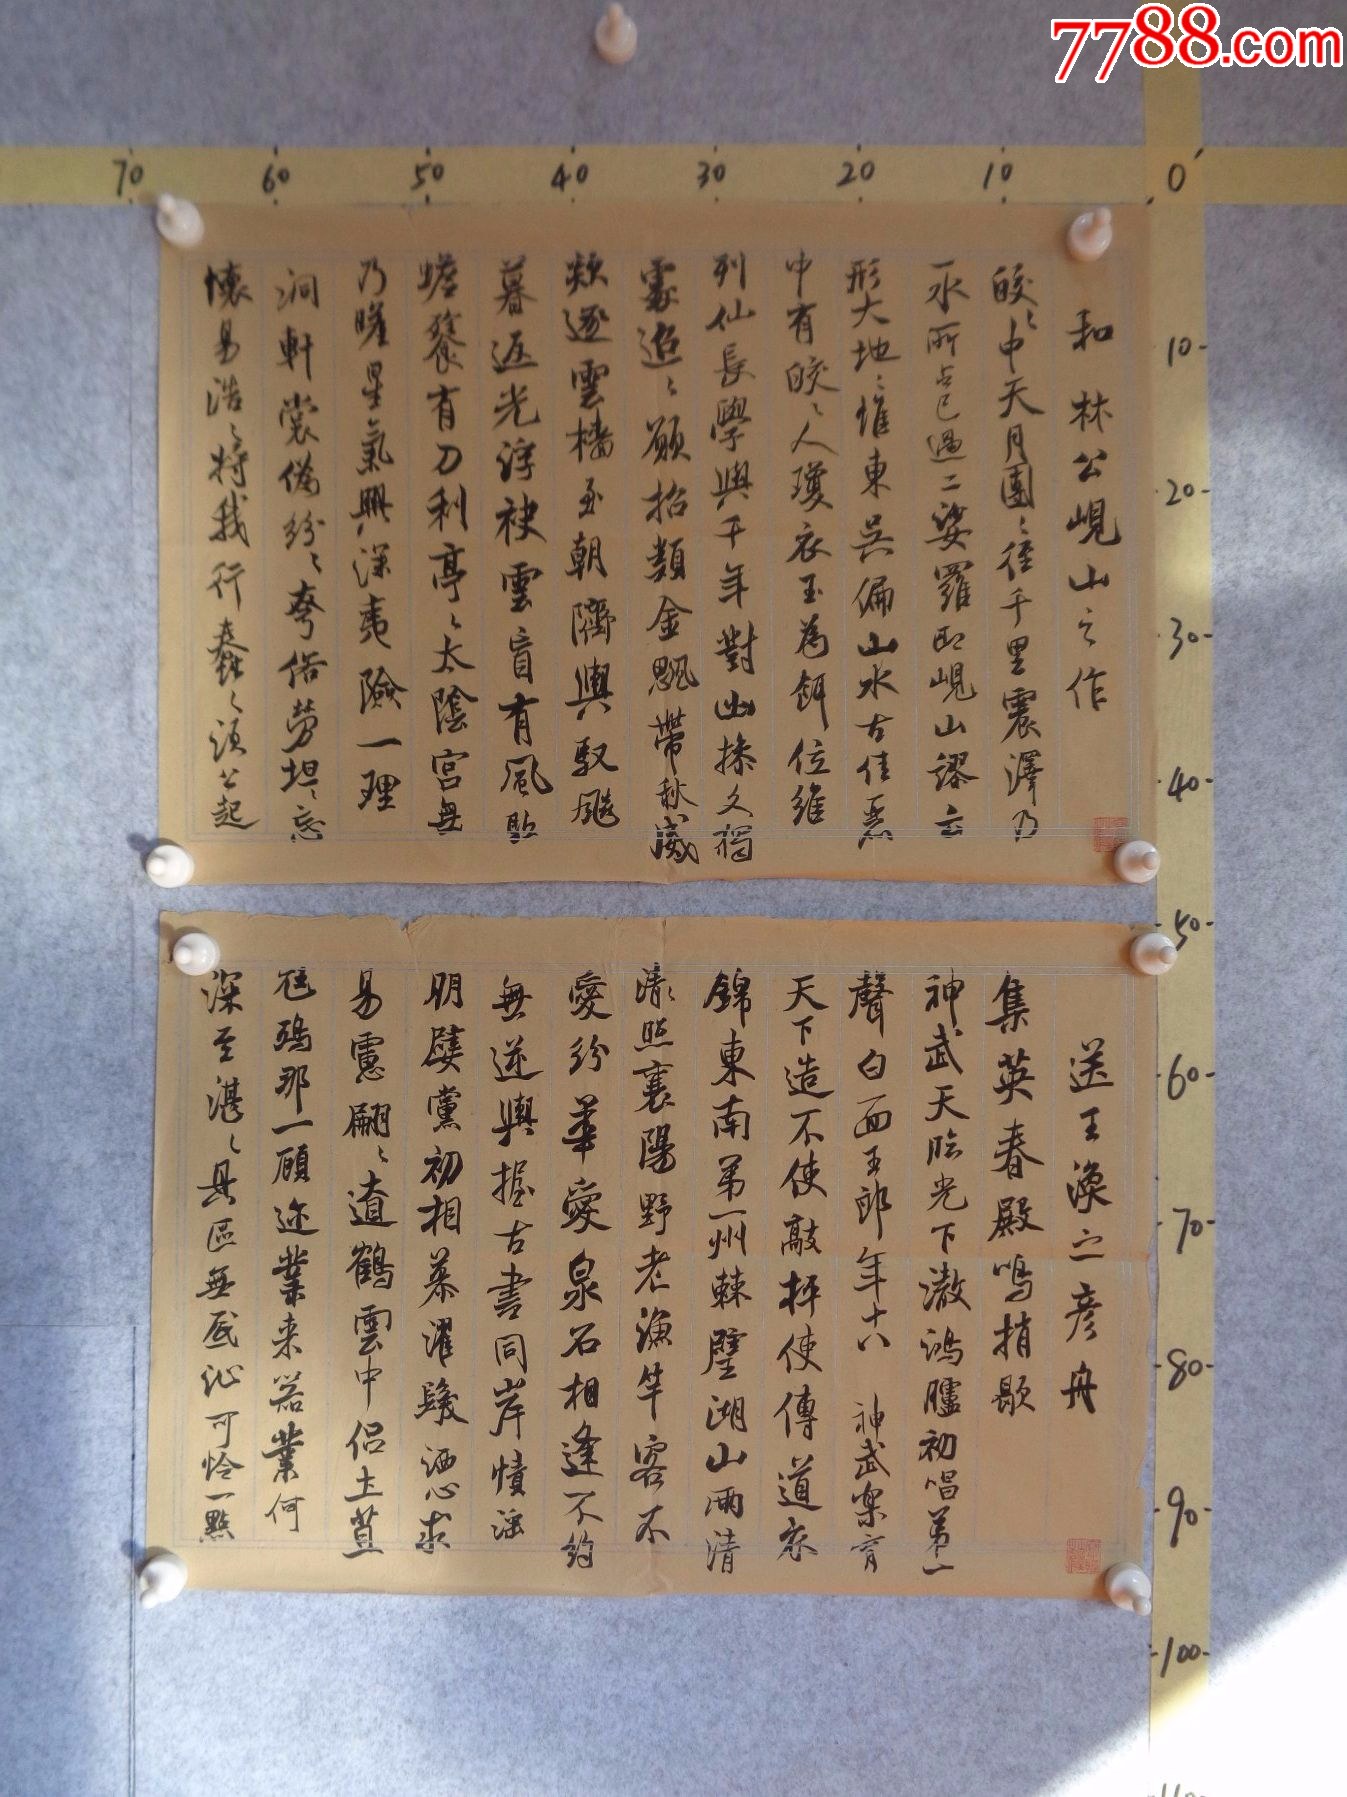 7788.com
70 60 50 40 30 20 10 0
和林公峴山之作
皎〻中天月團〻徑千里震澤乃
一水所占已過二娑羅即峴山謬云
形大地〻惟東吳偏山水古佳麗
中有皎〻人瓊衣玉為餌位維
列仙長學與千年對幽操久獨
處迢〻願招類金飈帶秋威
欻逐雲檣至朝隮輿馭飈
暮返光浮袂雲盲有風駈
蟾餮有刀利亭〻太陰宮無
乃瞻星氣興深夷險一理
洞軒裳偽紛〻夸俗勞坦〻忘
懷易浩〻將我行蠢〻須公起
送王渙之彥舟
集英春殿鳴捎歇
神武天臨光下澈鴻臚初唱第一
聲白面王郎年十八神武樂育
天下造不使敲枰使傳道衣
錦東南第一州棘璧湖山兩清
照襄陽野老漁竿客不
愛紛華愛泉石相逢不約
無逆輿握古書同岸幘淫
朋嬖黨初相慕濯髮洒心求
易慮翩〻遼鶴雲中侶土苴
尫鴉那一顧邇業業来器業何
深至湛〻具區無底沚可怜一點
10
20
30
40
50
60
70
80
90
100